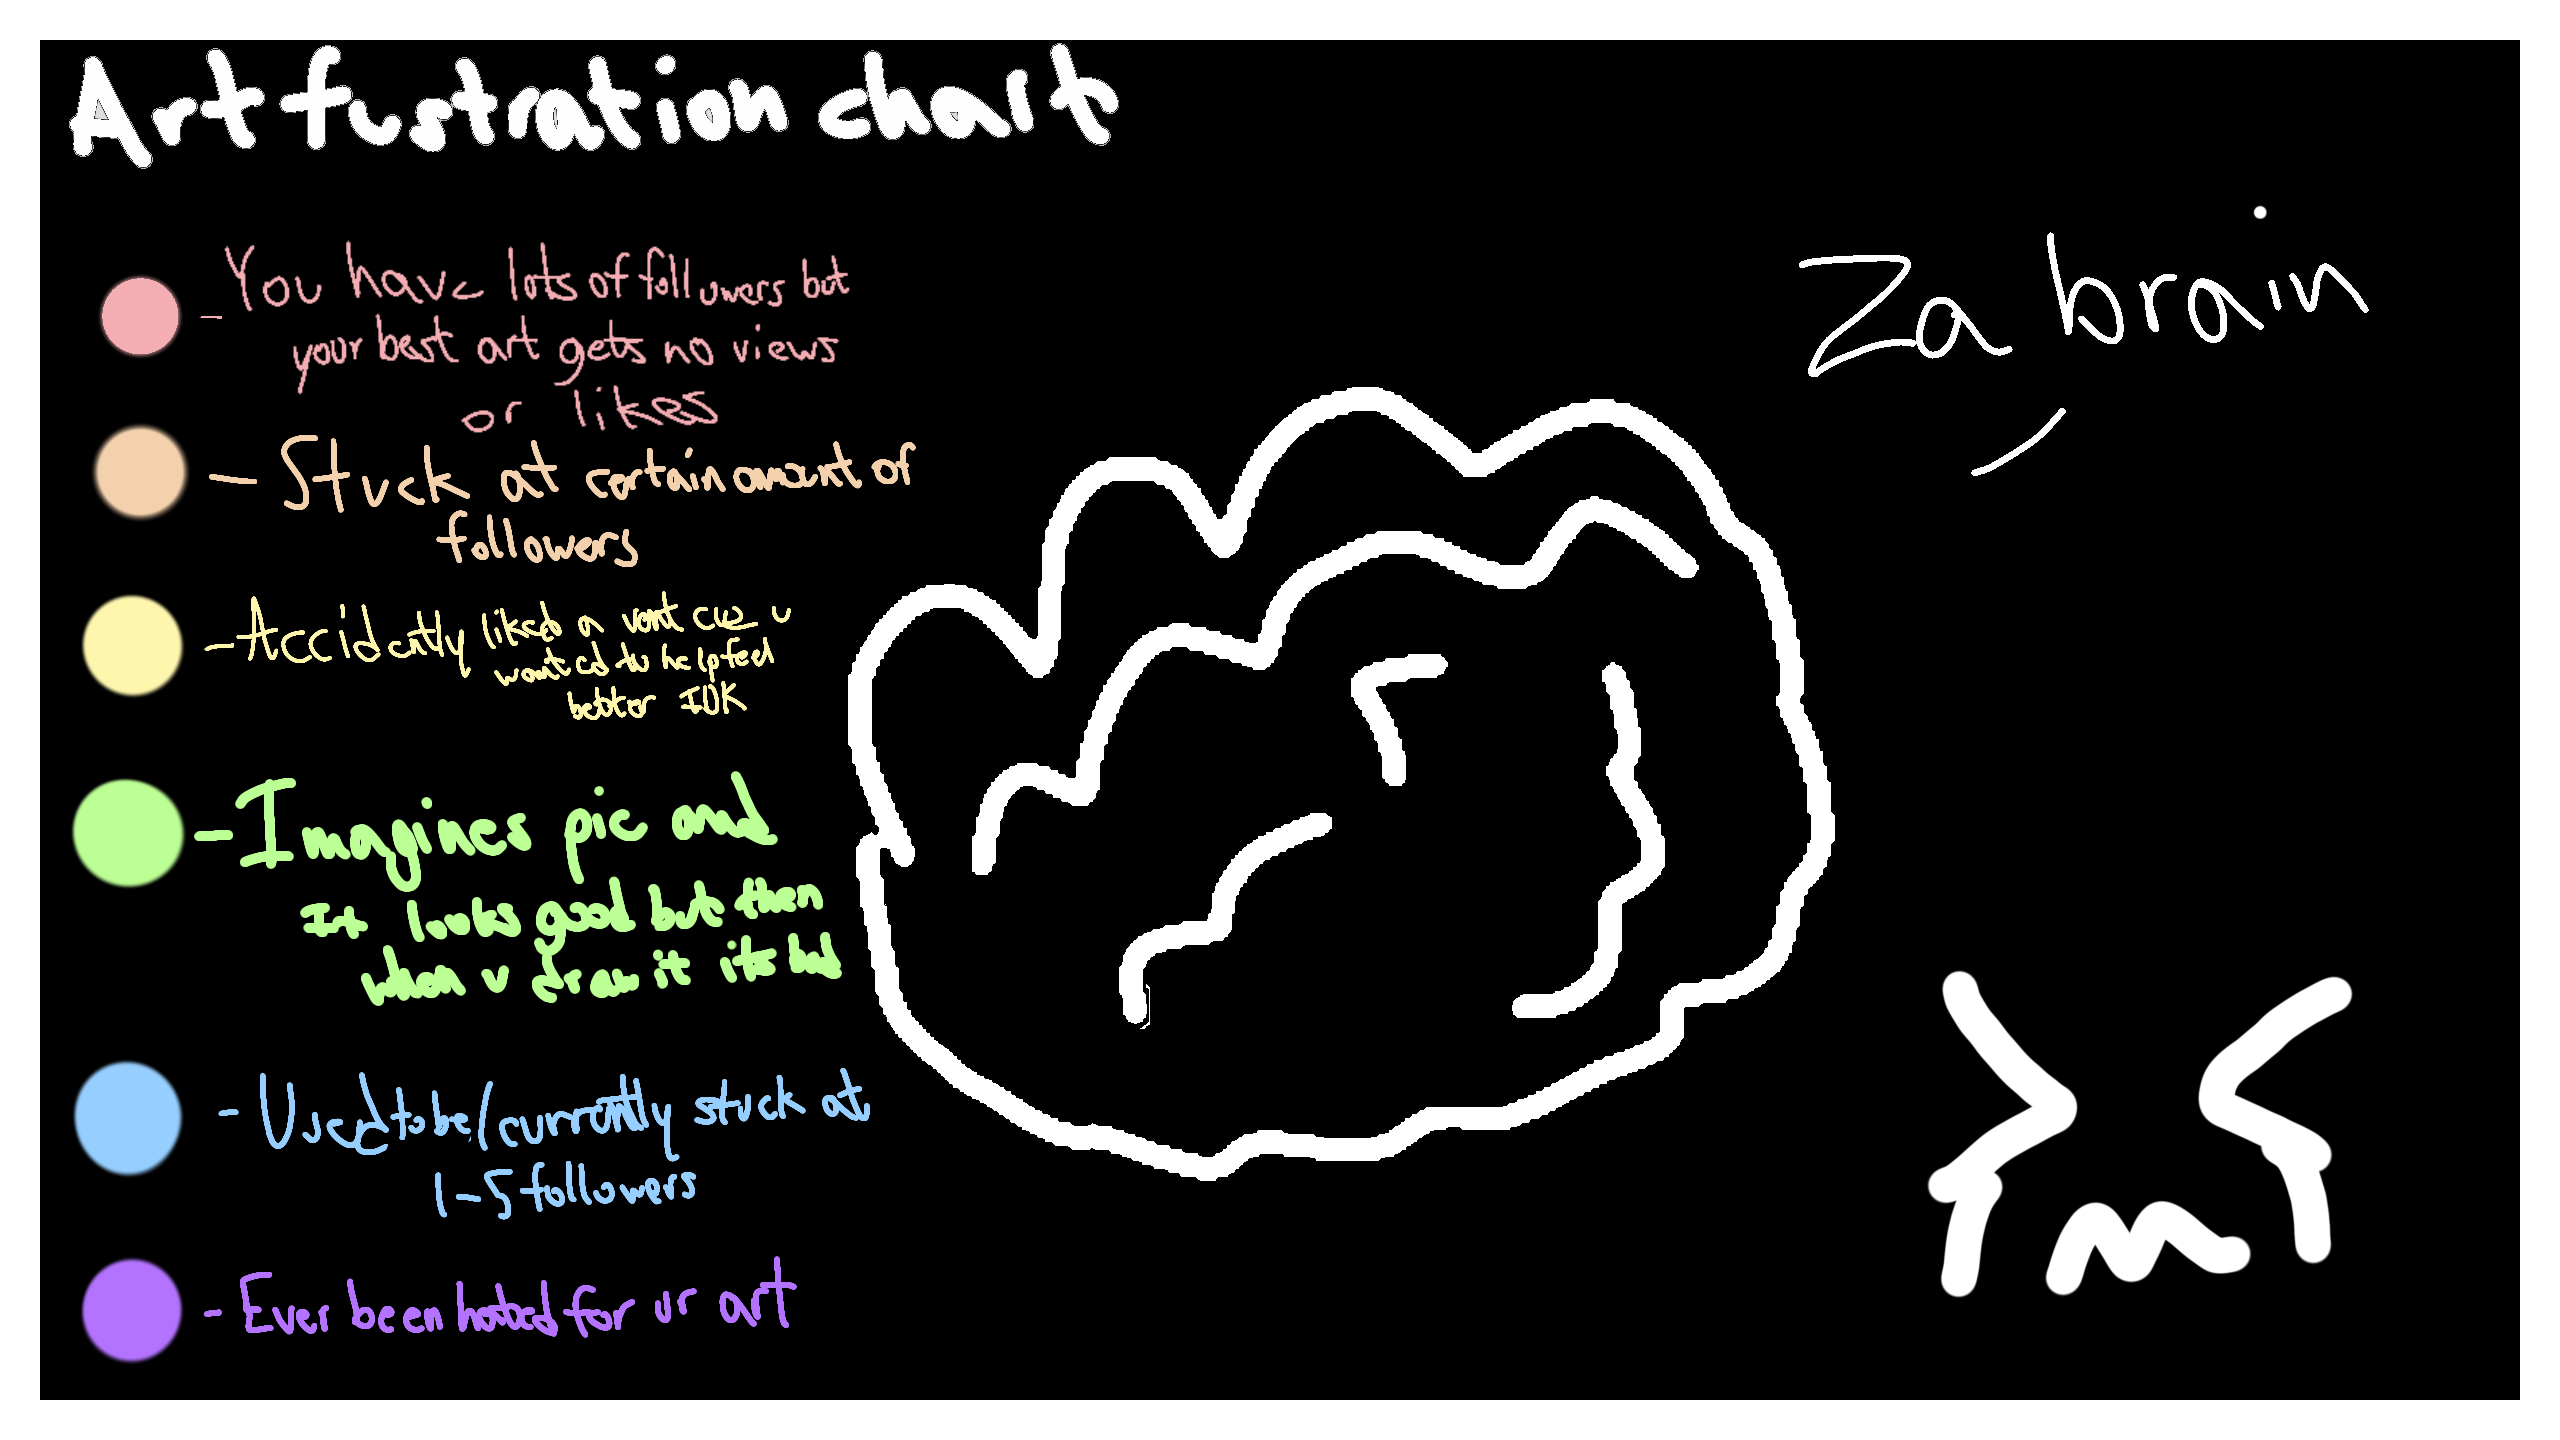 Art fustration chart
- You have lots of followers but
your best art gets no views
or likes
- Stuck at certain amount of
followers
- Accidently liked a vent cuz u
wanted to help feel
better IDK
- Imagines pic and
It looks good but then
when u draw it its bad
- Used to be/currently stuck at
1-5 followers
- Ever been hated for ur art
Za brain